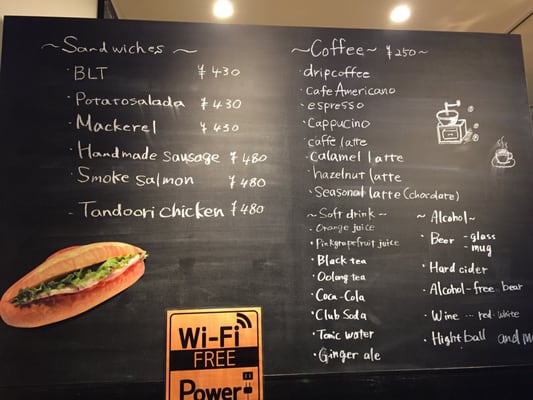 ~Sandwiches~
·BLT ¥430
·Potatosalada ¥430
·Mackerel ¥430
·Handmade sausage ¥480
·Smoke salmon ¥480
·Tandoori chicken ¥480
~Coffee~ ¥250~
·dripcoffee
·cafe Americano
·espresso
·Cappucino
·caffe latte
·Calamel latte
·hazelnut latte
·Seasonal latte (chocolate)
~Soft drink~
·Orange juice
·Pinkgrapefruit juice
·Black tea
·Oolong tea
·Coca-Cola
·Club Soda
·Tonic water
·Ginger ale
~Alcohol~
·Beer -glass
-mug
·Hard cider
·Alcohol-free bear
·Wine ... red. white
·Hightball and m
Wi-Fi
FREE
Power